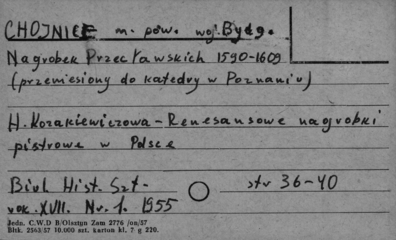 CHOJNICE m. pow. woj. Bydg.
Nagrobek Przecławskich 1590-1609
(przeniesiony do katedry w Poznaniu)
H. Kozakiewiczowa - Renesansowe nagrobki
piętrowe w Polsce
Biul. Hist. Szt. - str 36-40
rok. XVII. Nr. 1. 1955
Jedn. C.W.D B/Olsztyn Zam 2776 /on/57
Błtk. 2563/57 10.000 szt. karton kl. 7 g 220.